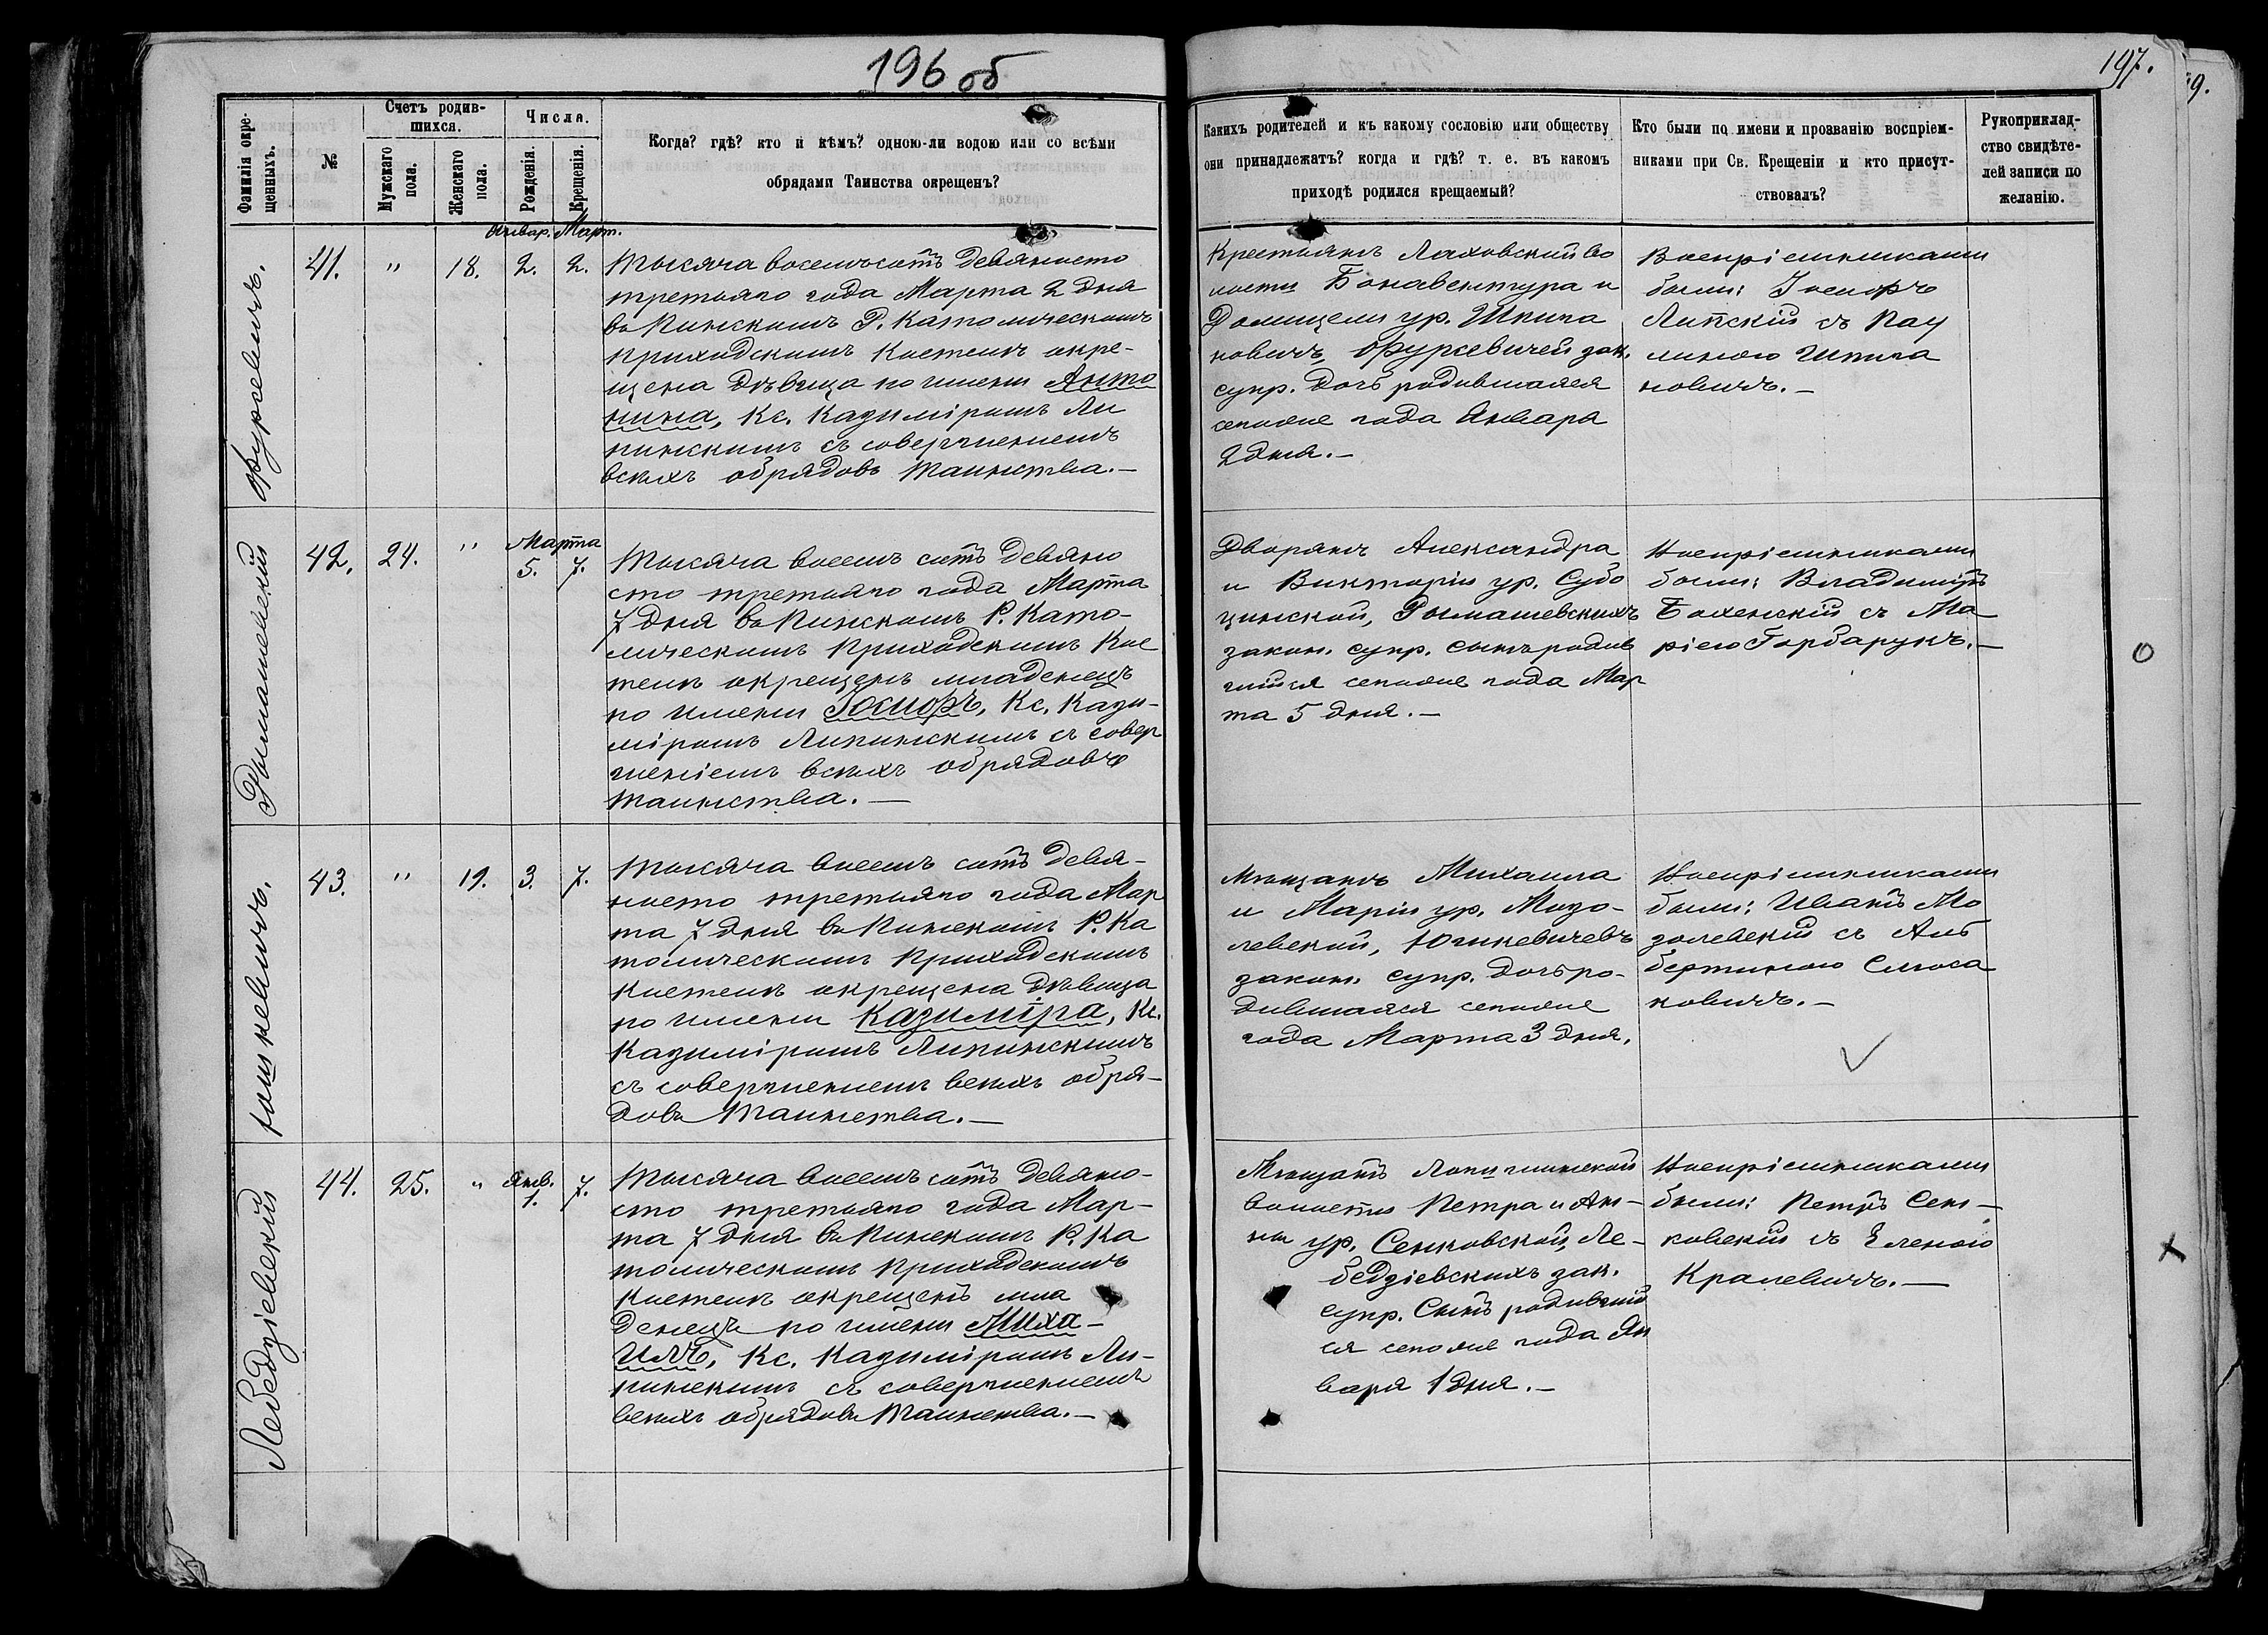 196 об
197.
9.
Фамилія окре-
щенныхъ.
№
Счетъ родив-
шихся.
Мужскаго
пола.
Женскаго
пола.
Числа.
Рожденія.
Крещенія.
Когда? гдѣ? кто и кѣмъ? одною-ли водою или со всѣми
обрядами Таинства окрещенъ?
Какихъ родителей и къ какому сословію или обществу
они принадлежатъ? когда и гдѣ? т. е. въ какомъ
приходѣ родился крещаемый?
Кто были по имени и прозванію воспріем-
никами при Св. Крещеніи и кто присут-
ствовалъ?
Рукоприклад-
ство свидѣте-
лей записи по
желанію.
Фурсевичъ.
41.
"
18.
Январ. Март.
2. 2.
Тысяча восемьсотъ девяносто
третьяго года Марта 2 дня
въ Пинскомъ Р. Католическомъ
приходскомъ Костелѣ окре-
щена дѣвица по имени Анто
нина, Кс. Казиміромъ Ли
пинскимъ съ совершениемъ
всѣхъ обрядовъ таинства.—
Крестьянъ Лаховской во
лости Бонавентура и
Домицели ур. Шпига
новичъ, Фурсевичей зак.
супр. дочь родившаяся
сегоже года Января
2 дня.—
Воспріемниками
были: Іосифъ
Липскій съ Пау
линою Шпига
новичъ.—
Рымашевскій
42.
24.
"
Марта
5. 7.
Тысяча восемъ сотъ девяно
сто третьяго года Марта
7 дня въ Пинскомъ Р. Като-
лическомъ Приходскомъ Кос
телѣ окрещенъ младенецъ
по имени Іосифъ, Кс. Кази-
міромъ Липинскимъ съ совер
шеніемъ всѣхъ обрядовъ
таинства.—
Дворянъ Александра
и Викторіи ур. Субо
цинской, Рымашевскихъ
закон. супр. сынъ родив
шійся сегоже года Мар
та 5 дня.—
Воспріемниками
были: Владиміръ
Боженскій съ Ма-
ріею Гарбарукъ.—
Юшкевичъ.
43.
"
19.
3. 7.
Тысяча восемъ сотъ девя-
носто третьяго года Мар
та 7 дня въ Пинскомъ Р. Ка
толическомъ Приходскомъ
Костелѣ окрещена дѣвица
по имени Казиміра, Кс.
Казиміромъ Липинскимъ
съ совершениемъ всѣхъ обря-
довъ Таинства.—
Мѣщанъ Михаила
и Маріи ур. Мозо-
левской, Юшкевичевъ
закон. супр. дочь ро-
дившаяся сегоже
года Марта 3 дня.
Воспріемниками
были: Иванъ Мо
золевскій съ Аль
бертиною Слюса
ковичъ.—
Лебедзіевскій
44.
25.
"
Янв.
1. 7.
Тысяча восемъ сотъ девяно-
сто третьяго года Мар-
та 7 дня въ Пинскомъ Р. Ка
толическомъ Приходскомъ
Костелѣ окрещенъ мла
денецъ по имени Миха-
илъ, Кс. Казиміромъ Ли-
пинскимъ съ совершениемъ
всѣхъ обрядовъ Таинства.—
Мѣщанъ Логишинской
волости Петра и Ан-
ны ур. Сенковской, Ле-
бедзіевскихъ зак.
супр. Сынъ родившій
ся сегоже года Ян
варя 1 дня.—
Воспріемниками
были: Петръ Сен-
ковскій съ Еленою
Кралевичъ.—